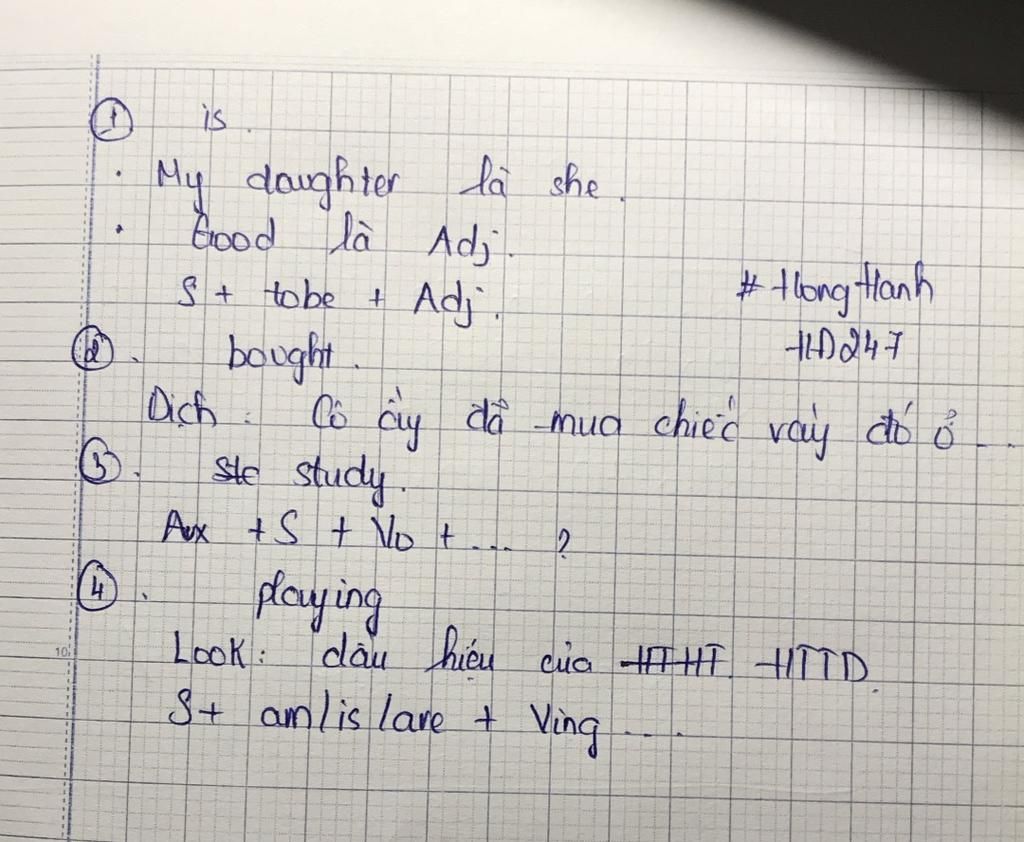 ① is.
. My daughter là she.
. Good là Adj.
S + tobe + Adj.
# HongHanh
HD247
②. bought.
Dịch: Cô ấy đã mua chiếc váy đó ở ...
③. study.
Aux + S + Vo + .... ?
④. playing
Look: dấu hiệu của HTHT HTTD.
S + am/is/are + Ving ....
10